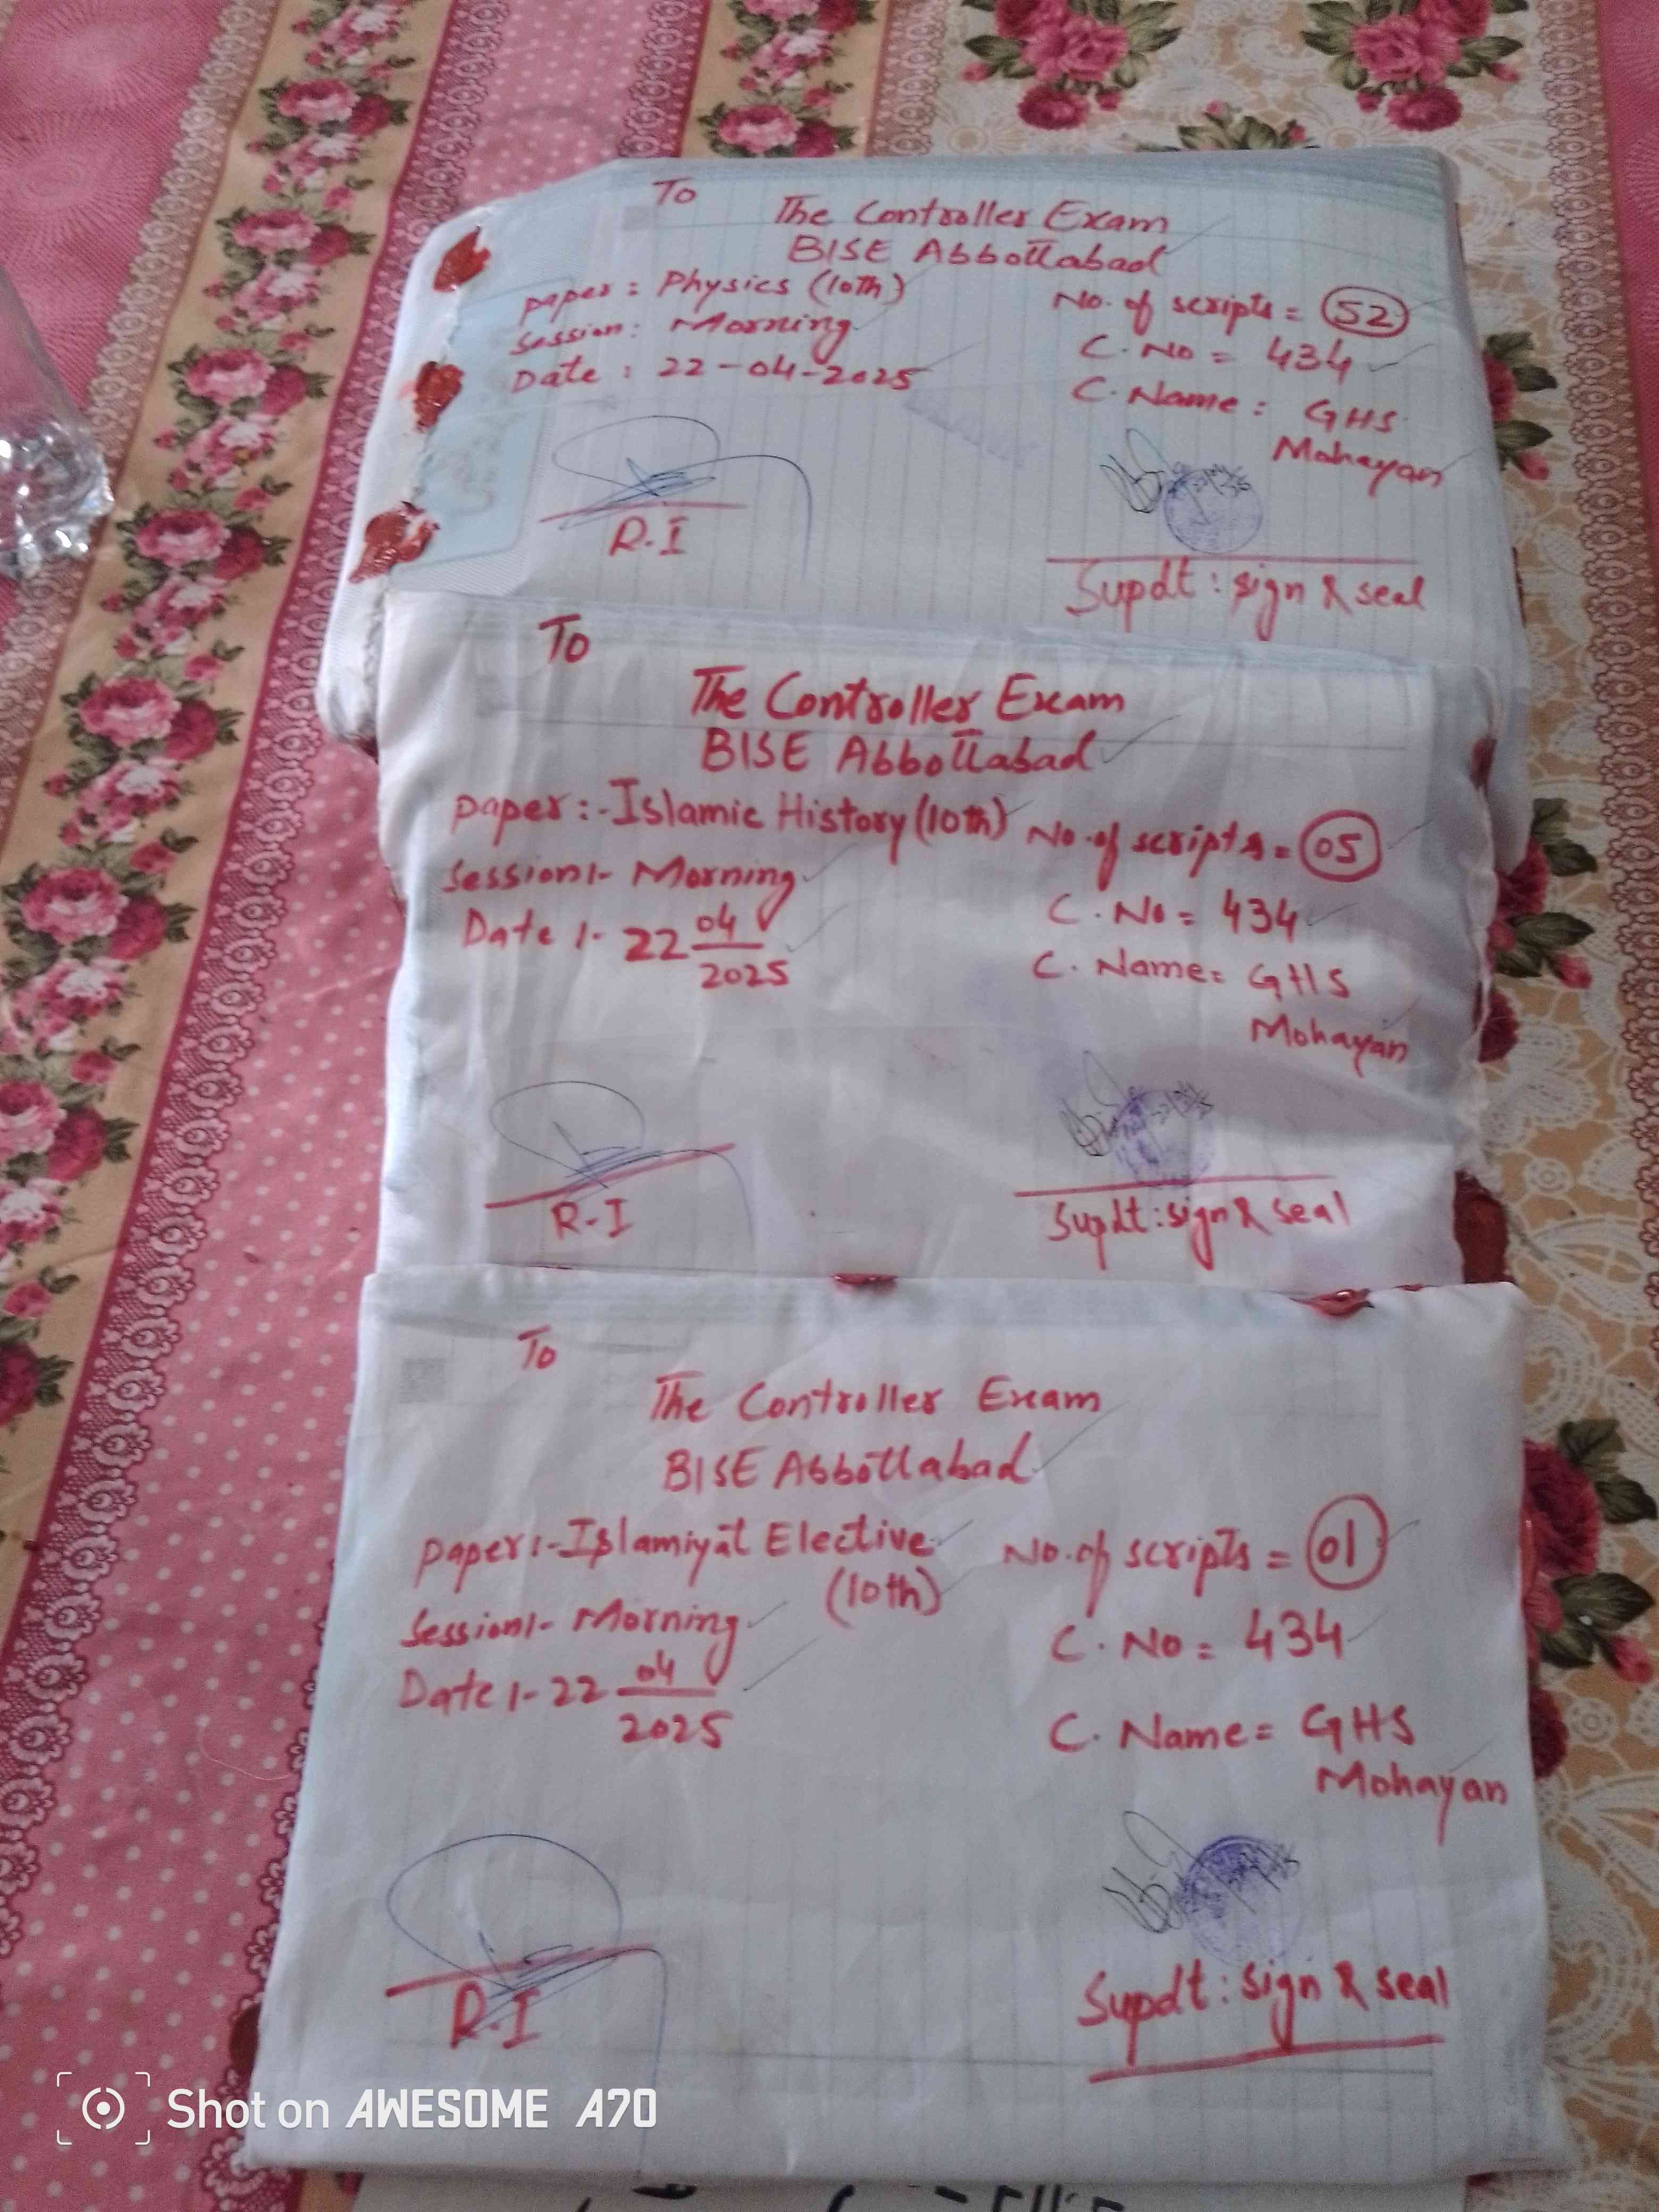 To
The Controller Exam
BISE Abbottabad
Paper : Physics (10th)
Session : Morning
Date : 22-04-2025
No. of scripts = 52
C. No = 434
C. Name : GHS
Mohayan
R.I
Supdt : sign & seal
To
The Controller Exam
BISE Abbottabad
Paper :- Islamic History (10th)
Session :- Morning
Date :- 22 04/2025
No. of scripts = 05
C. No = 434
C. Name = GHS
Mohayan
R-I
Supdt : sign & seal
To
The Controller Exam
BISE Abbottabad
Paper :- Islamiyat Elective
(10th)
Session :- Morning
Date :- 22 04/2025
No. of scripts = 01
C. No = 434
C. Name = GHS
Mohayan
R.I
Supdt : sign & seal
Shot on AWESOME A70